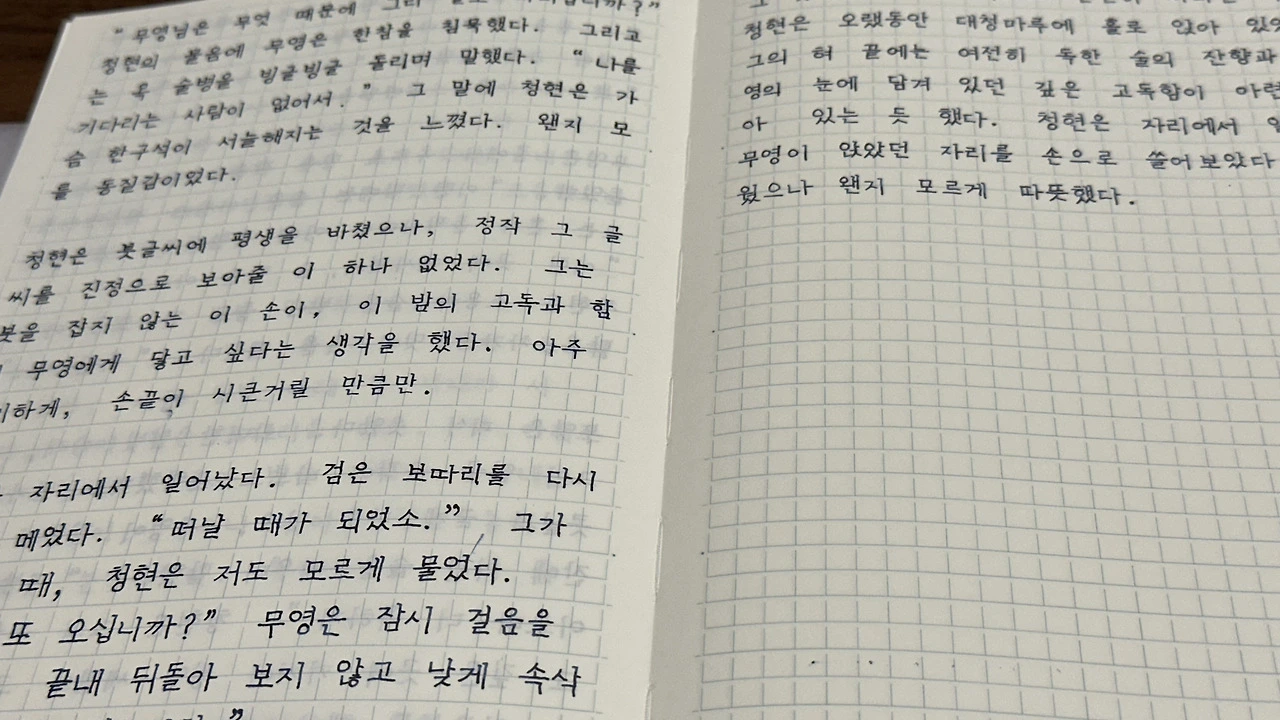 "무영님은 무엇 때문에 그리
청현의 물음에 무영은 한참을 침묵했다. 그리고
는 옥 술병을 빙글빙글 돌리며 말했다. "나를
기다리는 사람이 없어서." 그 말에 청현은 가
슴 한구석이 서늘해지는 것을 느꼈다. 왠지 모
를 동질감이었다.
청현은 붓글씨에 평생을 바쳤으나, 정작 그 글
씨를 진정으로 보아줄 이 하나 없었다. 그는
붓을 잡지 않는 이 손이, 이 밤의 고독과 함
무영에게 닿고 싶다는 생각을 했다. 아주
하게, 손끝이 시큰거릴 만큼만.
자리에서 일어났다. 검은 보따리를 다시
메었다. "떠날 때가 되었소." 그가
때, 청현은 저도 모르게 물었다.
또 오십니까?" 무영은 잠시 걸음을
끝내 뒤돌아 보지 않고 낮게 속삭
청현은 오랬동안 대청마루에 홀로 앉아
그의 혀 끝에는 여전히 독한 술의 잔향과
영의 눈에 담겨 있던 깊은 고독함이
아 있는 듯 했다. 청현은 자리에서
무영이 앉았던 자리를 손으로 쓸어보았다
웠으나 왠지 모르게 따뜻했다.